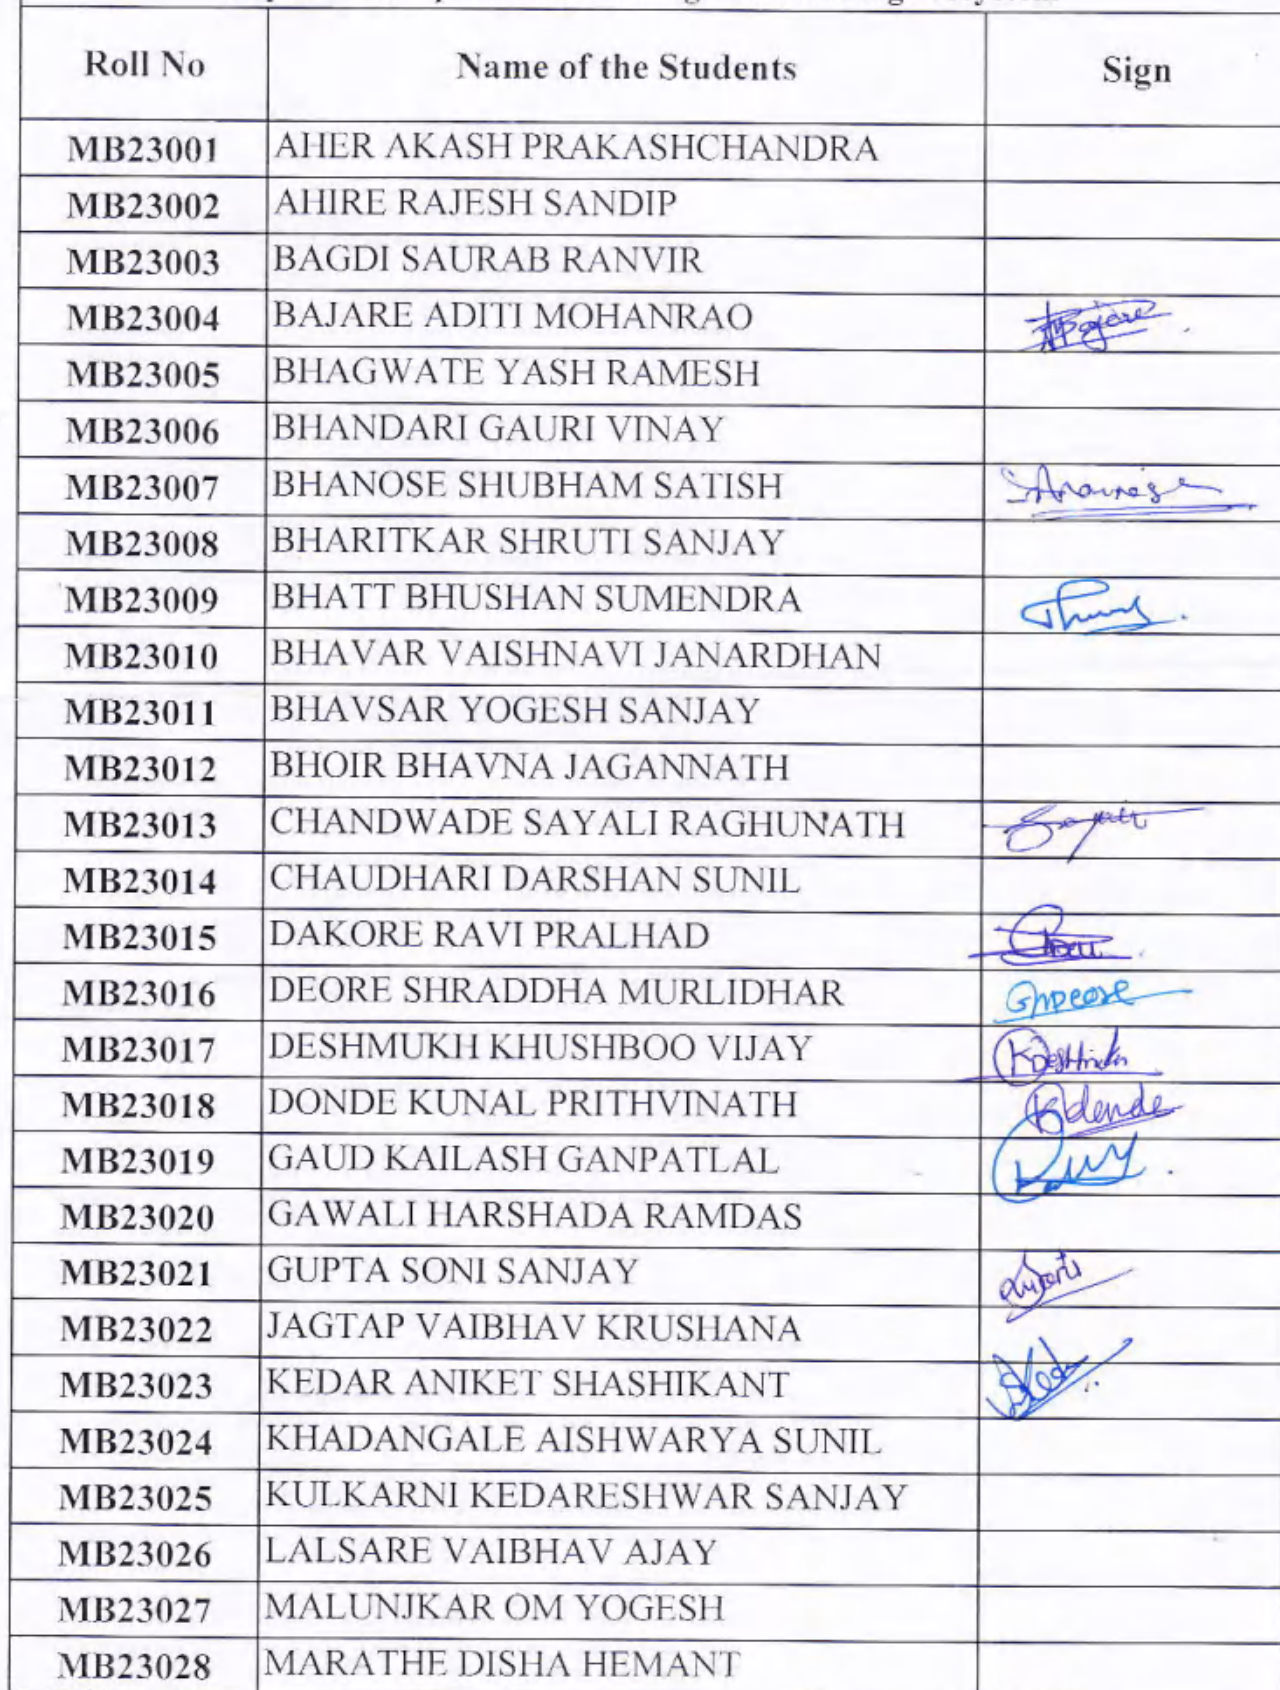 Roll No Name of the Students Sign
MB23001 AHER AKASH PRAKASHCHANDRA
MB23002 AHIRE RAJESH SANDIP
MB23003 BAGDI SAURAB RANVIR
MB23004 BAJARE ADITI MOHANRAO Bajare
MB23005 BHAGWATE YASH RAMESH
MB23006 BHANDARI GAURI VINAY
MB23007 BHANOSE SHUBHAM SATISH
MB23008 BHARITKAR SHRUTI SANJAY
MB23009 BHATT BHUSHAN SUMENDRA
MB23010 BHAVAR VAISHNAVI JANARDHAN
MB23011 BHAVSAR YOGESH SANJAY
MB23012 BHOIR BHAVNA JAGANNATH
MB23013 CHANDWADE SAYALI RAGHUNATH
MB23014 CHAUDHARI DARSHAN SUNIL
MB23015 DAKORE RAVI PRALHAD
MB23016 DEORE SHRADDHA MURLIDHAR
MB23017 DESHMUKH KHUSHBOO VIJAY
MB23018 DONDE KUNAL PRITHVINATH
MB23019 GAUD KAILASH GANPATLAL
MB23020 GAWALI HARSHADA RAMDAS
MB23021 GUPTA SONI SANJAY
MB23022 JAGTAP VAIBHAV KRUSHANA
MB23023 KEDAR ANIKET SHASHIKANT
MB23024 KHADANGALE AISHWARYA SUNIL
MB23025 KULKARNI KEDARESHWAR SANJAY
MB23026 LALSARE VAIBHAV AJAY
MB23027 MALUNJKAR OM YOGESH
MB23028 MARATHE DISHA HEMANT